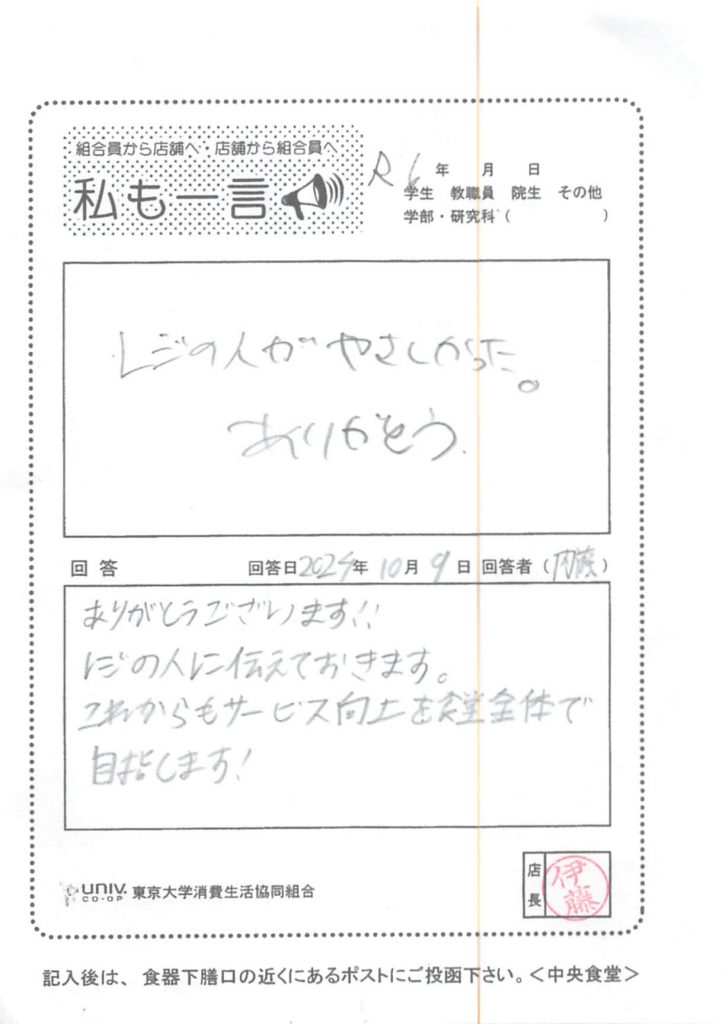 組合員から店舗へ・店舗から組合員へ
私も一言
R6年 月 日
学生 教職員 院生 その他
学部・研究科( )
レジの人がやさしかった。
ありがとう.
回答 回答日2024年10月9日 回答者( )
ありがとうございます!!
レジの人に伝えておきます。
これからもサービス向上を食堂全体で
目指します!
店長
伊藤
UNIV. CO-OP 東京大学消費生活協同組合
記入後は、食器下膳口の近くにあるポストにご投函下さい。<中央食堂>